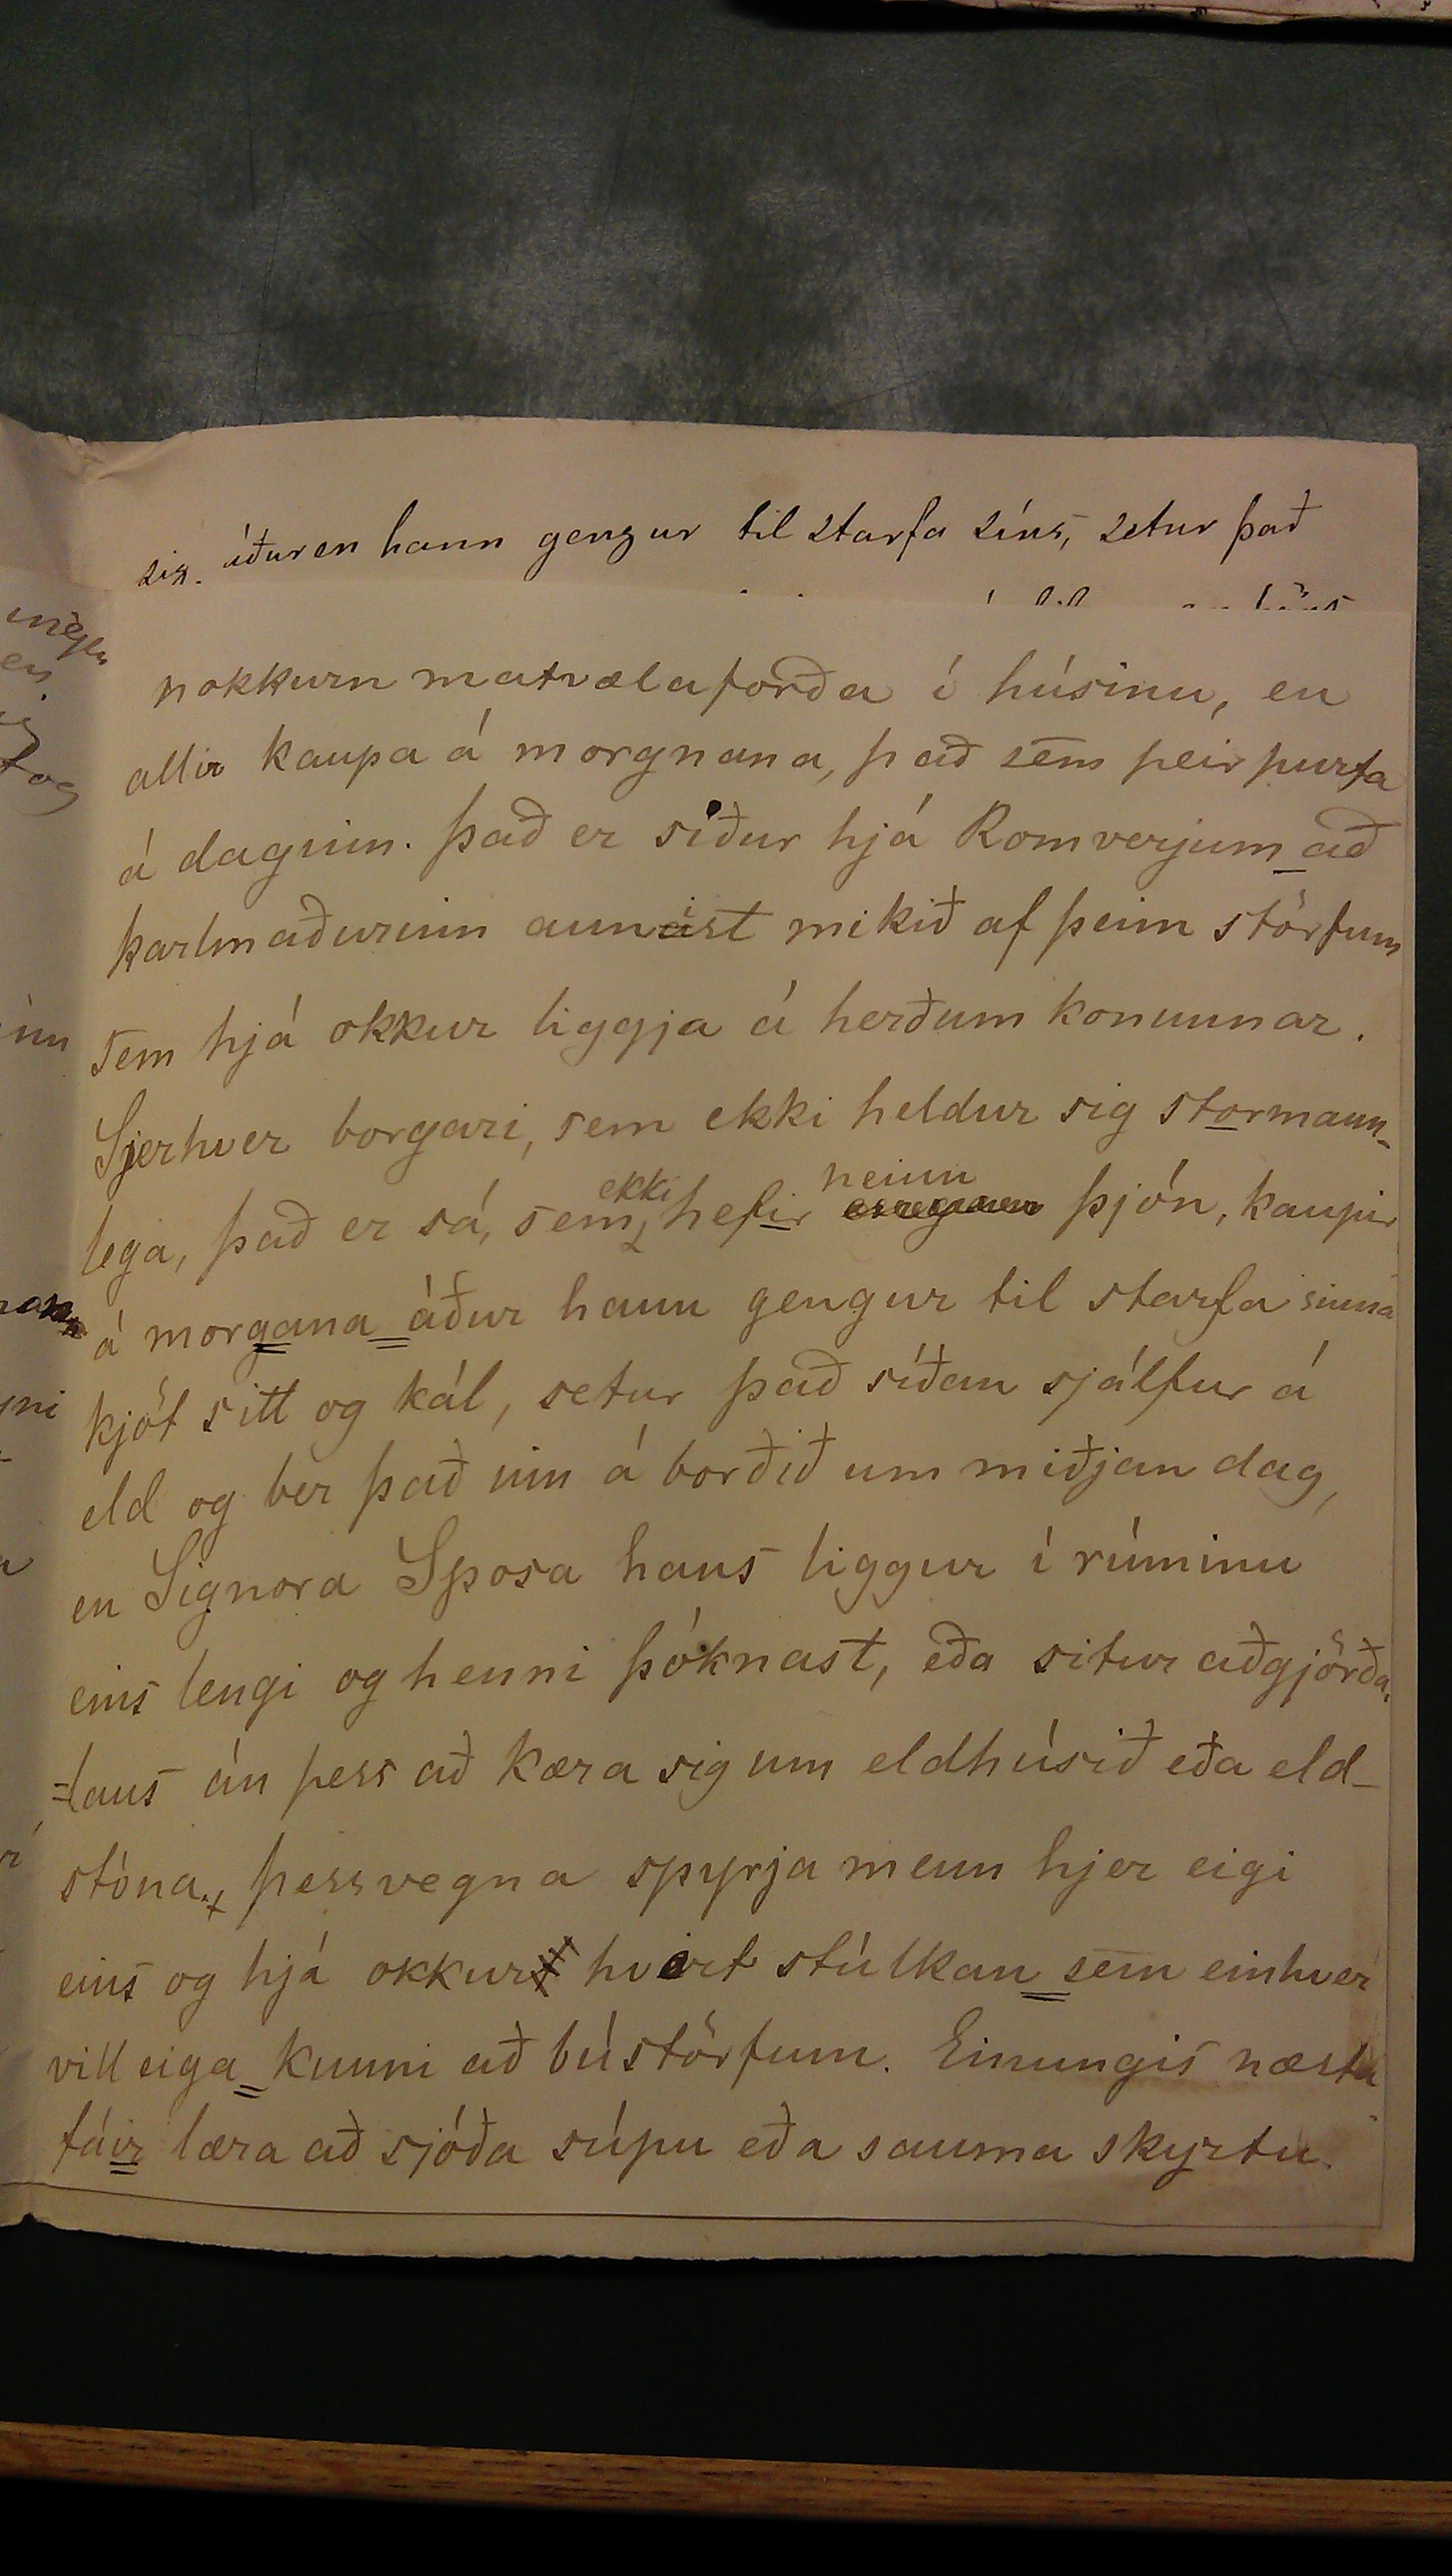 sig. áður en hann gengur til starfa síns, setur það
nokkurn matvælaforða í húsinu, en
allir kaupa á morgnana, það sem þeir þurfa
á daginn. Það er siður hjá Romverjum að
karlmaðurinn annist mikið af þeim störfum
sem hjá okkur liggja á herðum konunnar.
Sjerhver borgari, sem ekki heldur sig stormann-
lega, það er sá, sem ekki hefir neinn þjón, kaupir
á morgana áður hann gengur til starfa sinna
kjöt sitt og kál, setur það síðan sjálfur á
eld og ber það inn á borðið um miðjan dag,
en Signora Sposa hans liggur í rúminu
eins lengi og henni þóknast, eða situr aðgjörða-
=laus án þess að kæra sig um eldhúsið eða eld-
stóna. þessvegna spyrja menn hjer eigi
eins og hjá okkur hvert stúlkan sem einhver
vill eiga kunni að bústörfum. Einungis næsta
fáir læra að sjóða súpu eða sauma skyrtu.